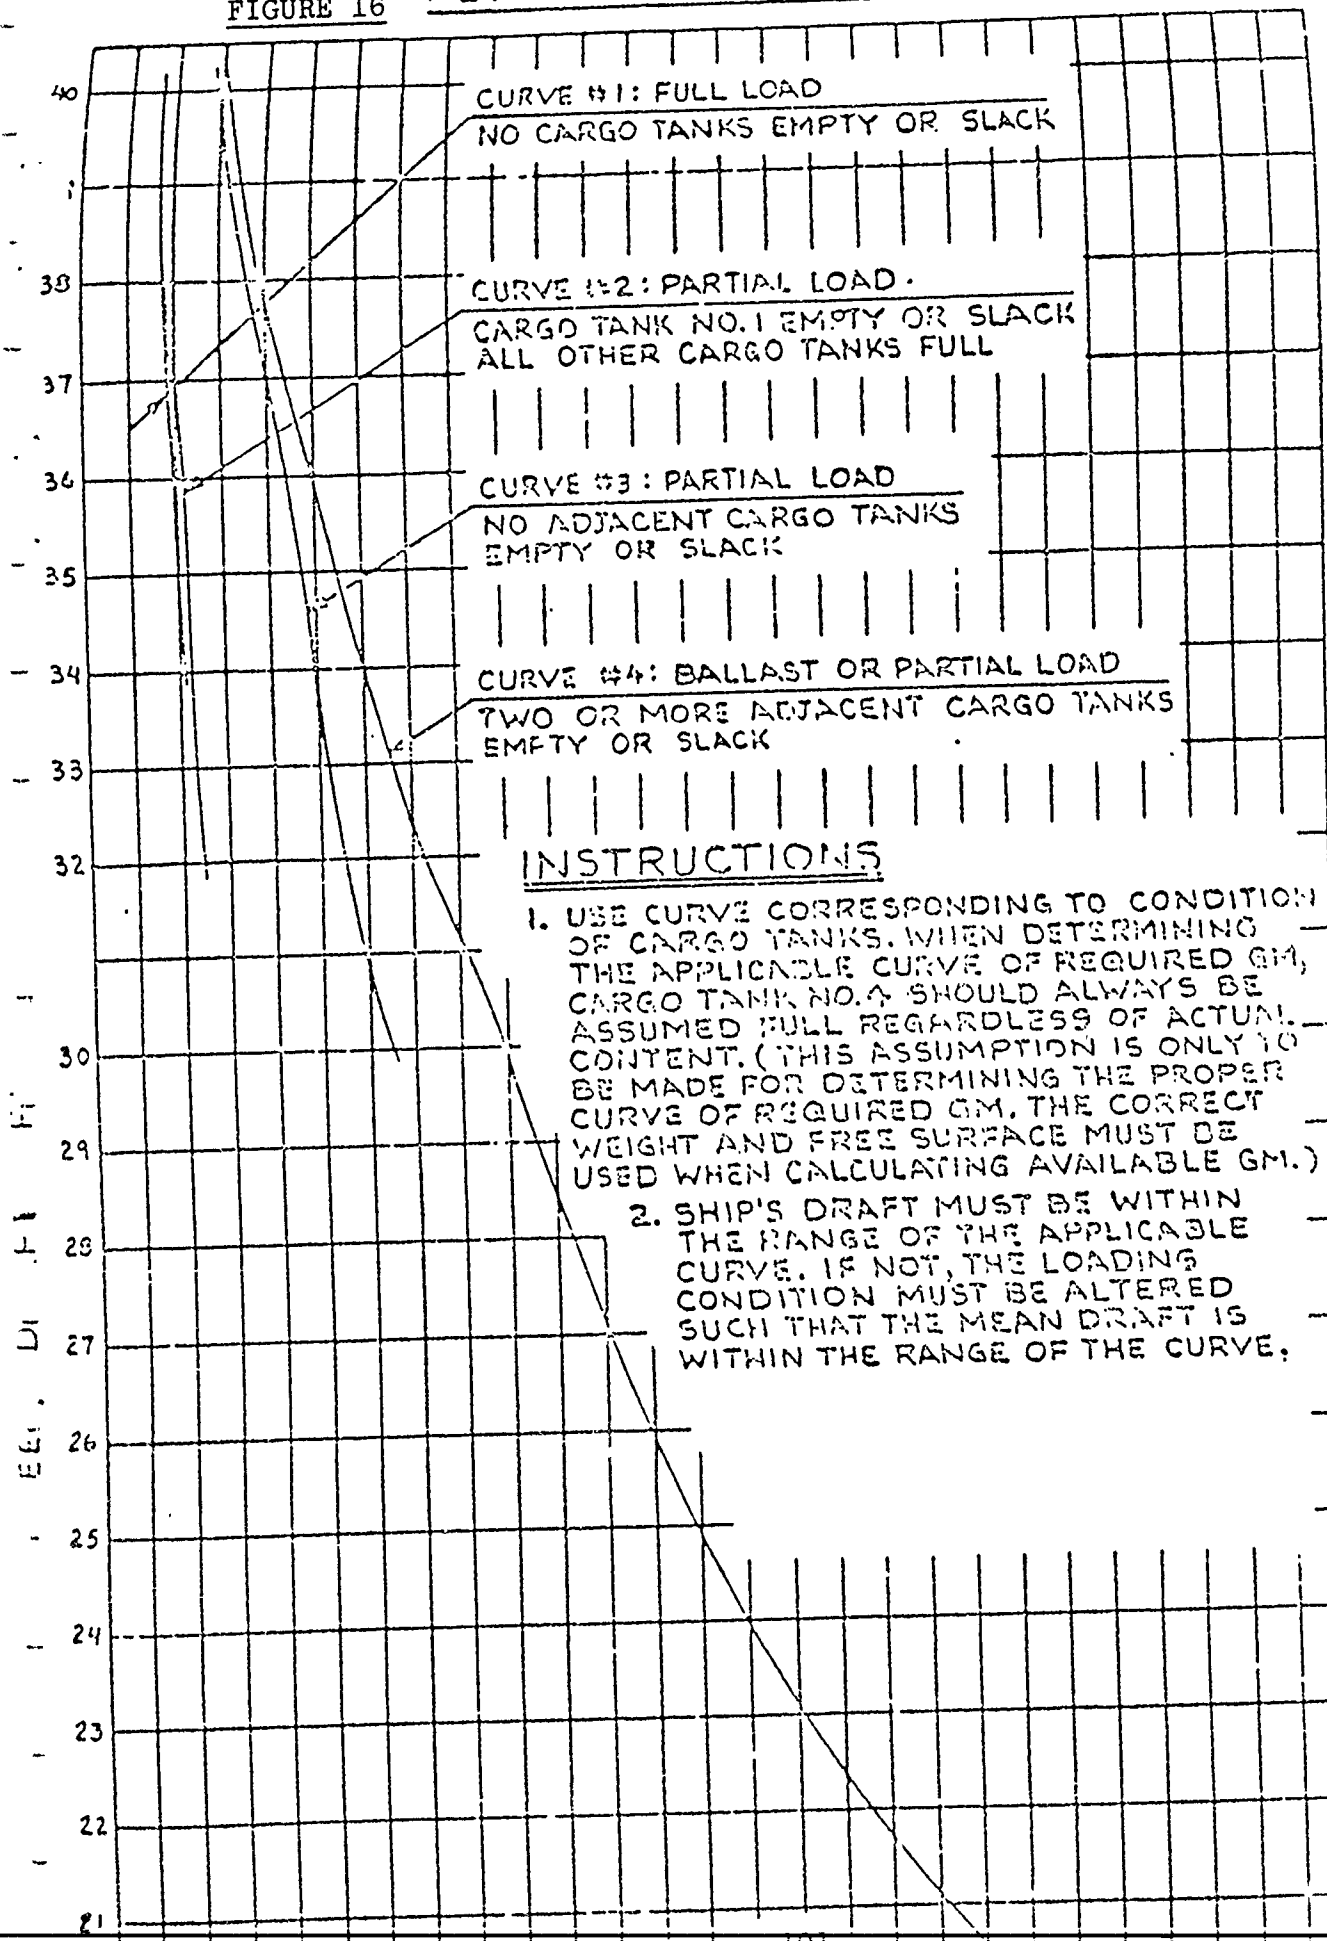 FIGURE 16
40
CURVE #1: FULL LOAD
NO CARGO TANKS EMPTY OR SLACK
38
CURVE #2: PARTIAL LOAD.
CARGO TANK NO. 1 EMPTY OR SLACK
ALL OTHER CARGO TANKS FULL
37
36
CURVE #3: PARTIAL LOAD
NO ADJACENT CARGO TANKS
EMPTY OR SLACK
35
34
CURVE #4: BALLAST OR PARTIAL LOAD
TWO OR MORE ADJACENT CARGO TANKS
EMPTY OR SLACK
33
32
INSTRUCTIONS
1. USE CURVE CORRESPONDING TO CONDITION
OF CARGO TANKS. WHEN DETERMINING
THE APPLICABLE CURVE OF REQUIRED GM,
CARGO TANK NO. 4 SHOULD ALWAYS BE
ASSUMED FULL REGARDLESS OF ACTUAL
CONTENT. (THIS ASSUMPTION IS ONLY TO
BE MADE FOR DETERMINING THE PROPER
CURVE OF REQUIRED GM. THE CORRECT
WEIGHT AND FREE SURFACE MUST BE
USED WHEN CALCULATING AVAILABLE GM.)
30
29
2. SHIP'S DRAFT MUST BE WITHIN
THE RANGE OF THE APPLICABLE
CURVE. IF NOT, THE LOADING
CONDITION MUST BE ALTERED
SUCH THAT THE MEAN DRAFT IS
WITHIN THE RANGE OF THE CURVE.
28
27
26
25
24
23
22
21